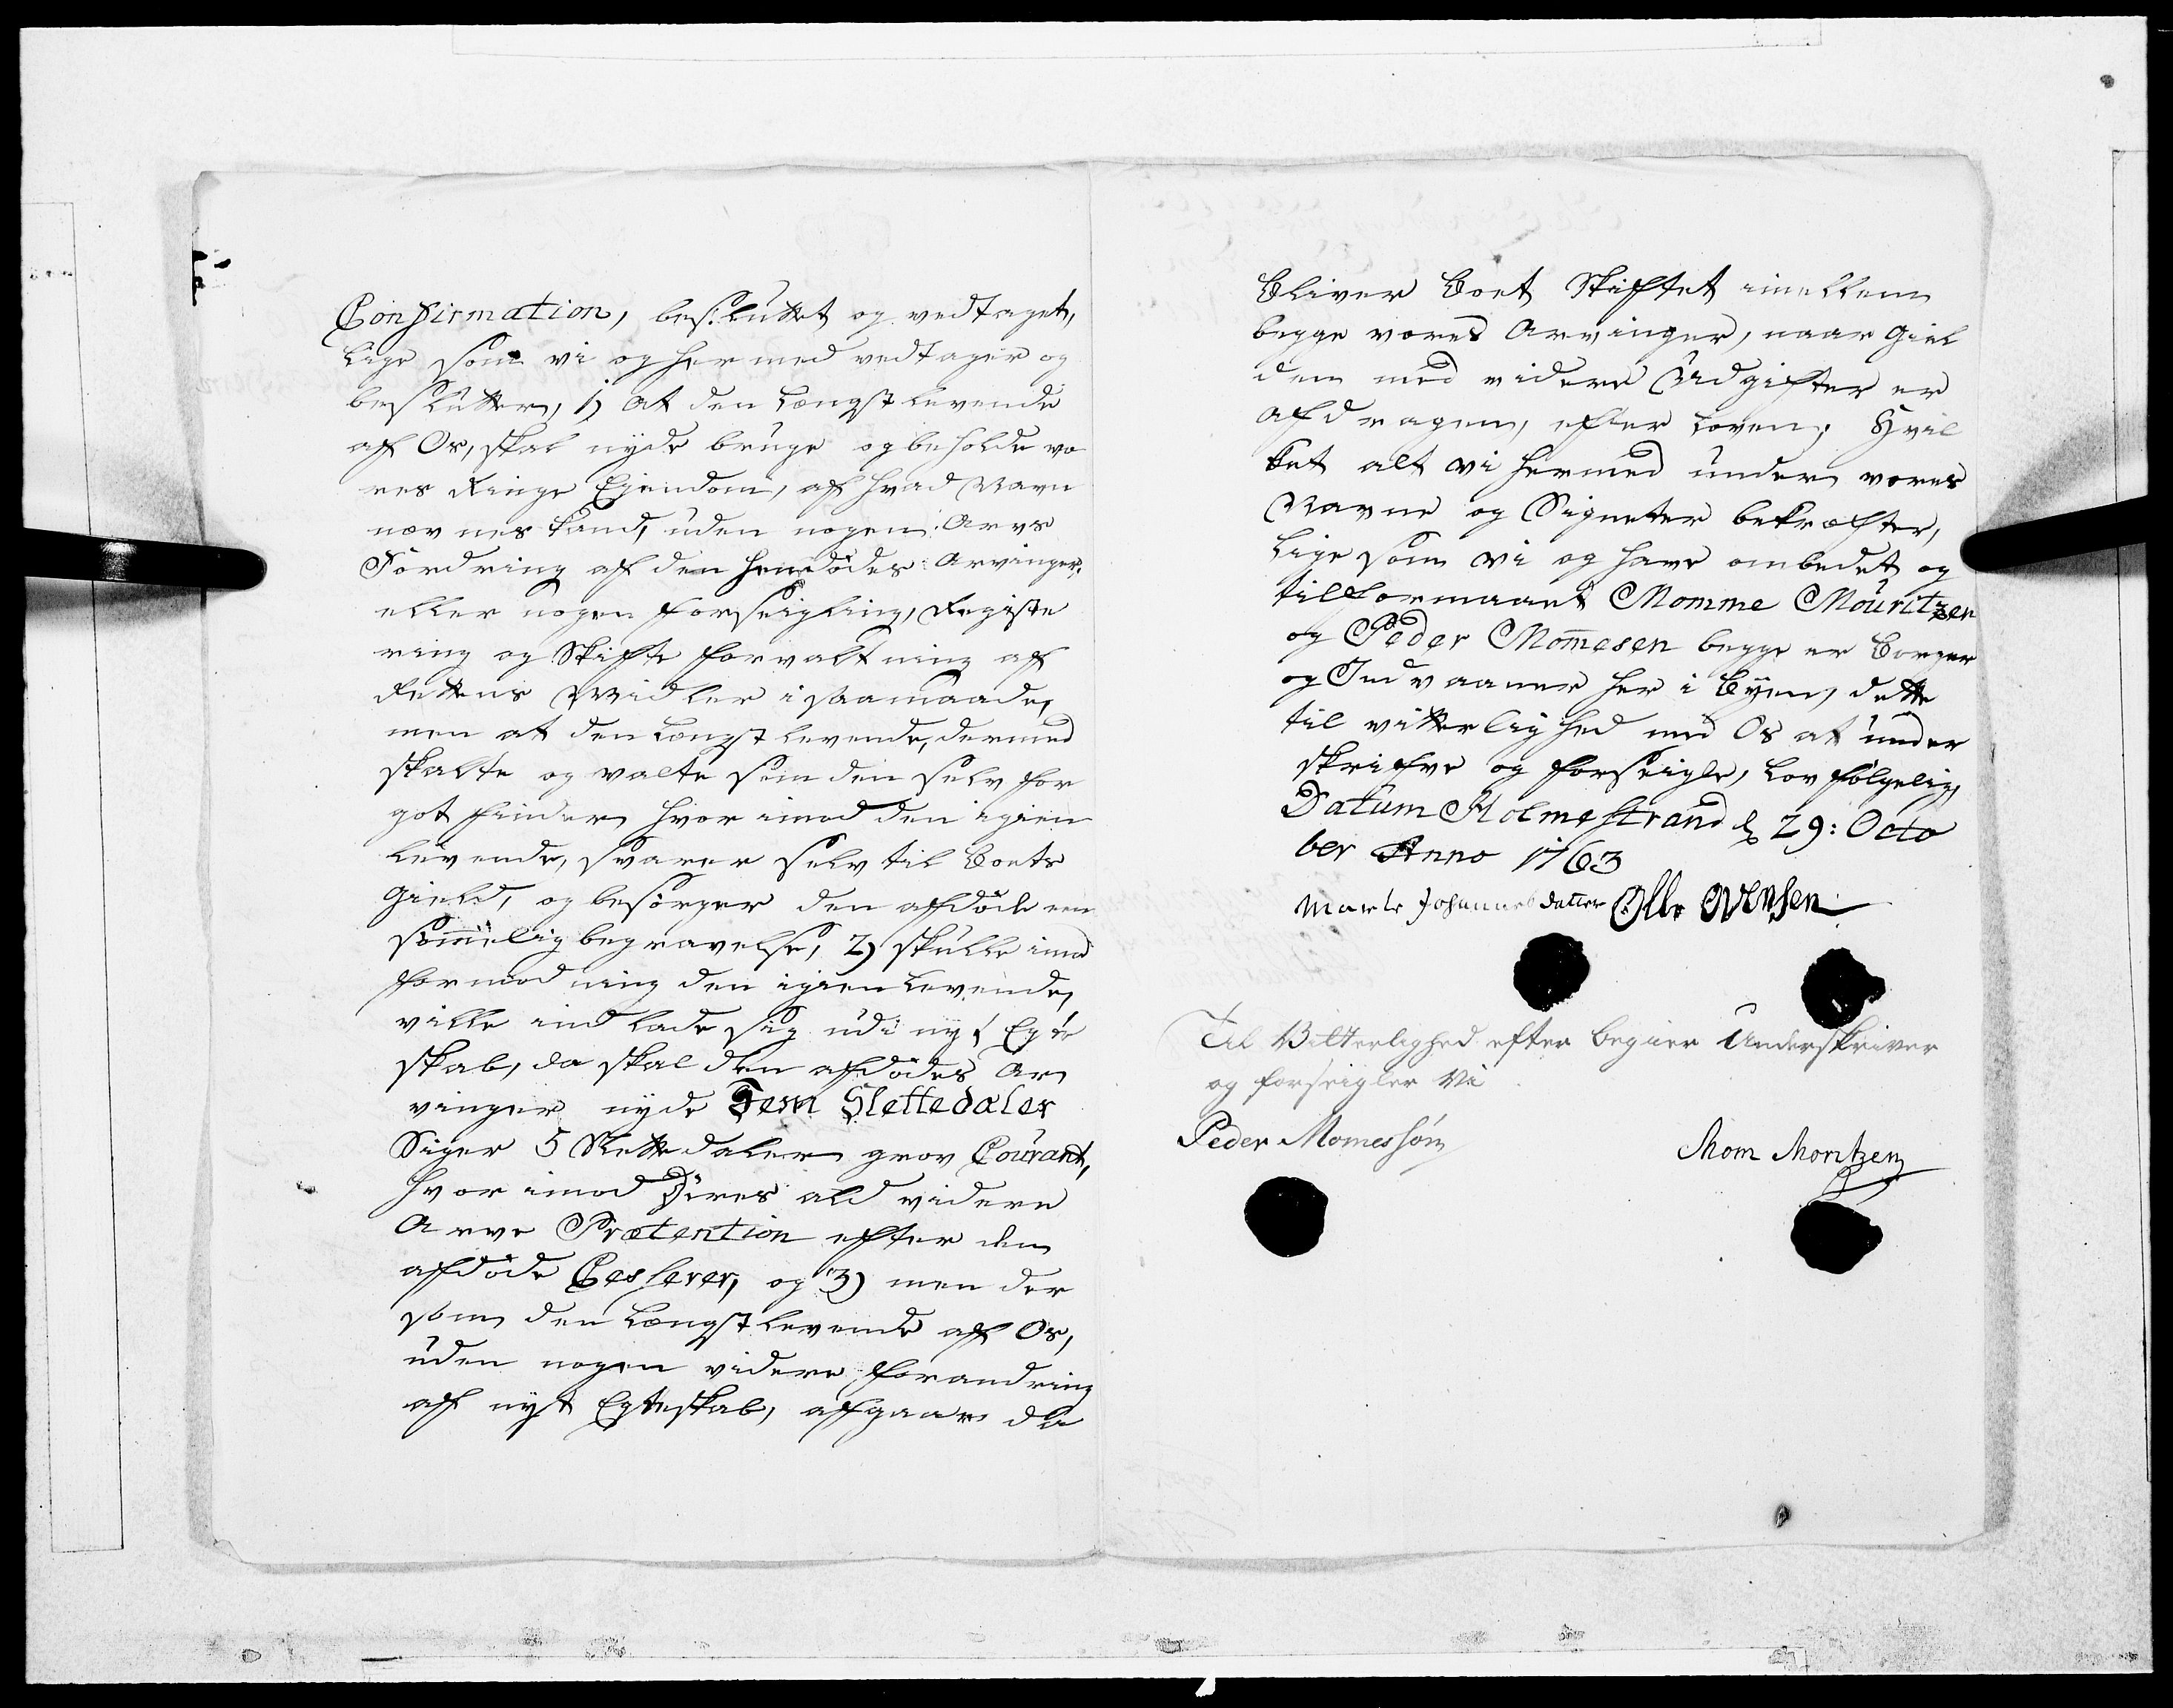 Confirmation, besluttet og vedtaget,
lige som vi og hermed vedtager og
beslutter, 1) at den Længst levende
af Os, skal nyde bruge og beholde vo
res Ringe Ejendom, af hvad Navn
nævnes kand, uden nogen Arvs
Fordring af den hendødes Arvinger,
eller nogen forseigling, Registe
ring og Skifte forvaltning af
Rettens Midler i saamaade,
men at den Længst levende, dermed
skalte og valte som den selv for
got finder, hvor imod den igien
levende, svarer selv til Boets
Gield, og besørger den afdøde en
sømmelig begravelse, 2) skulle imod
formodning den igienlevende,
ville ind lade sig udi nyt Egte
skab, da skal den afdødes Ar
vinger nyde Fem Slettedaler
Siger 5 Slettedaler grov Courant,
hvor imod Dires ald videre
Arve Prætention efter den
afdøde Cesserer, og 3) men der
som den Længst levende af Os,
uden nogen videre forandring
af nyt Egteskab, afgaar da
bliver Boet Skiftet imellem
begge vores Arvinger, naar Giel
den med videre Udgifter er
afdragen, efter Loven; Hvil
ket alt vi hermed under vores
Navne og Signeter bekræfter,
lige som vi og have ombedet og
tilformaaet Momme Mouritzen
og Peder Mom̄esen begge er Borger
og Indvaaner her i Byen, dette
til vitterlighed med Os at under
skrifve og forseigle, lov følgelig,
Datum Holmestrand d 29: Octo
ber Anno 1763
Marte Johannes datter Olle Ovensen
Til Vitterlighed efter begier Underskriver
og forseigler Vi
Peder Momessøn
Mom Moritzen